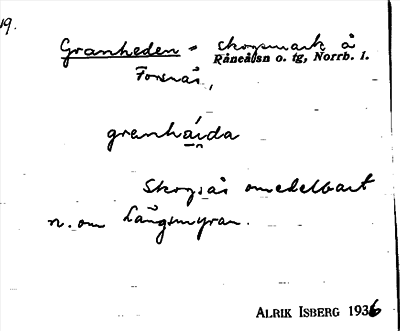 19.
Granheden = skogsmark å
Råneå sn o. tg, Norrb. l.
Forsnäs,
granhái̯da
Skogsås omedelbart
n. om Långmyran.
ALRIK ISBERG 1936